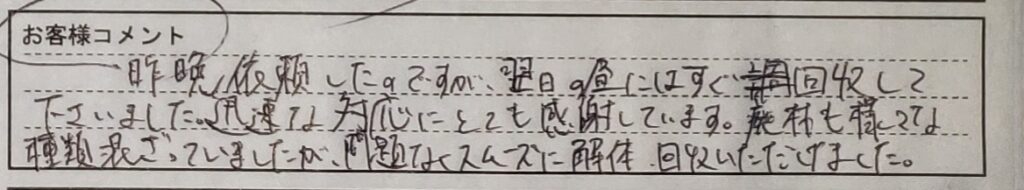 お客様コメント
昨晩、依頼したのですが、翌日の昼にはすぐ回収して
下さいました。迅速な対応にとても感謝しています。廃材も様々な
種類混ざっていましたが、問題なくスムーズに解体、回収いただけました。